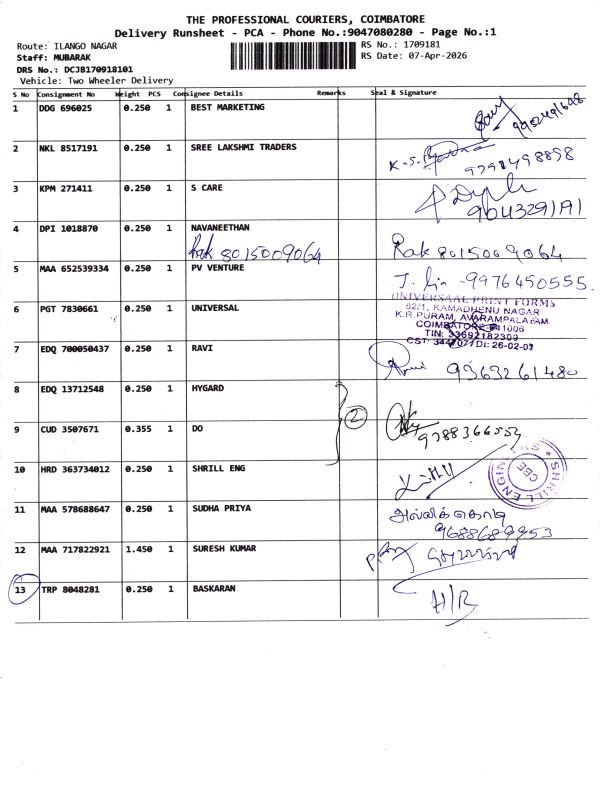 THE PROFESSIONAL COURIERS, COIMBATORE
Delivery Runsheet - PCA - Phone No.:9047080280 - Page No.:1
Route: ILANGO NAGAR
RS No.: 1709181
Staff: MUBARAK
RS Date: 07-Apr-2026
DRS No.: DCJB170918101
Vehicle: Two Wheeler Delivery
S No Consignment No Weight PCS Consignee Details Remarks Seal & Signature
1 DDG 696025 0.250 1 BEST MARKETING
2 NKL 8517191 0.250 1 SREE LAKSHMI TRADERS
K-S.
3 KPM 271411 0.250 1 S CARE
9043291191
4 DPI 1018870 0.250 1 NAVANEETHAN
Rak 8015009064 Rak 8015009064
5 MAA 652539334 0.250 1 PV VENTURE
9976450555
UNIVERSAAL PRINT FORMS
82/1, KAMADHENU NAGAR
6 PGT 7830661 0.250 1 UNIVERSAL
K.R.PURAM, AVARAMPALAYAM
COIMBATORE 641006
TIN: 33692182309
7 EDQ 700050437 0.250 1 RAVI
9363261480
8 EDQ 13712548 0.250 1 HYGARD
2
9 CUD 3507671 0.355 1 DO
10 HRD 363734012 0.250 1 SHRILL ENG
SHRILL ENGI
CBE
11 MAA 578688647 0.250 1 SUDHA PRIYA
அல்லிக்கொடி
9688689953
12 MAA 717822921 1.450 1 SURESH KUMAR
13 TRP 8048281 0.250 1 BASKARAN
H/R